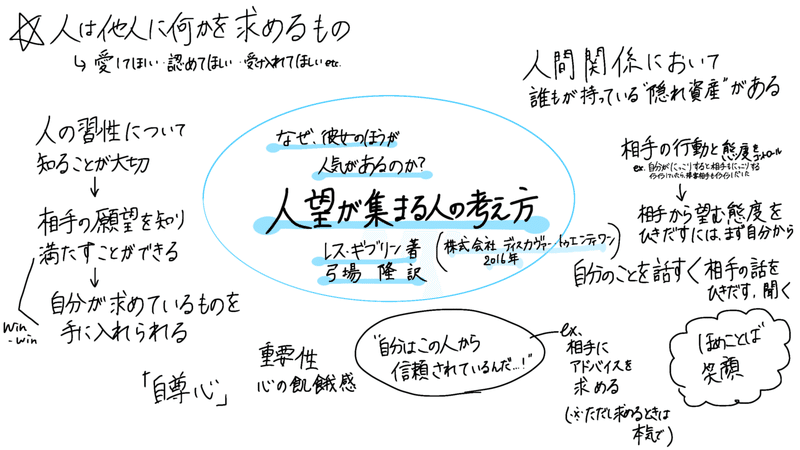 ☆人は他人に何かを求めるもの
↳愛してほしい・認めてほしい・受け入れてほしいetc.
人間関係において
誰もが持っている"隠れ資産"がある
人の習性について
知ることが大切
↓
相手の願望を知り
満たすことができる
↓
自分が求めているものを
手に入れられる
win
-win
なぜ、彼女のほうが
人気があるのか?
人望が集まる人の考え方
レス・ギブリン 著
弓場 隆 訳
(株式会社 ディスカヴァー・トゥエンティワン
2016年)
相手の行動と態度をコントロール
ex. 自分がにっこりすると相手もにっこりする
↓
相手から望む態度を
ひきだすには、まず自分から
自分のことを話すく相手の話を
ひきだす、聞く
「自尊心」
重要性
心の飢餓感
"自分はこの人から
信頼されているんだ…!"
ex.
相手に
アドバイスを
求める
(※ただし求めるときは
本気で)
ほめことば
笑顔